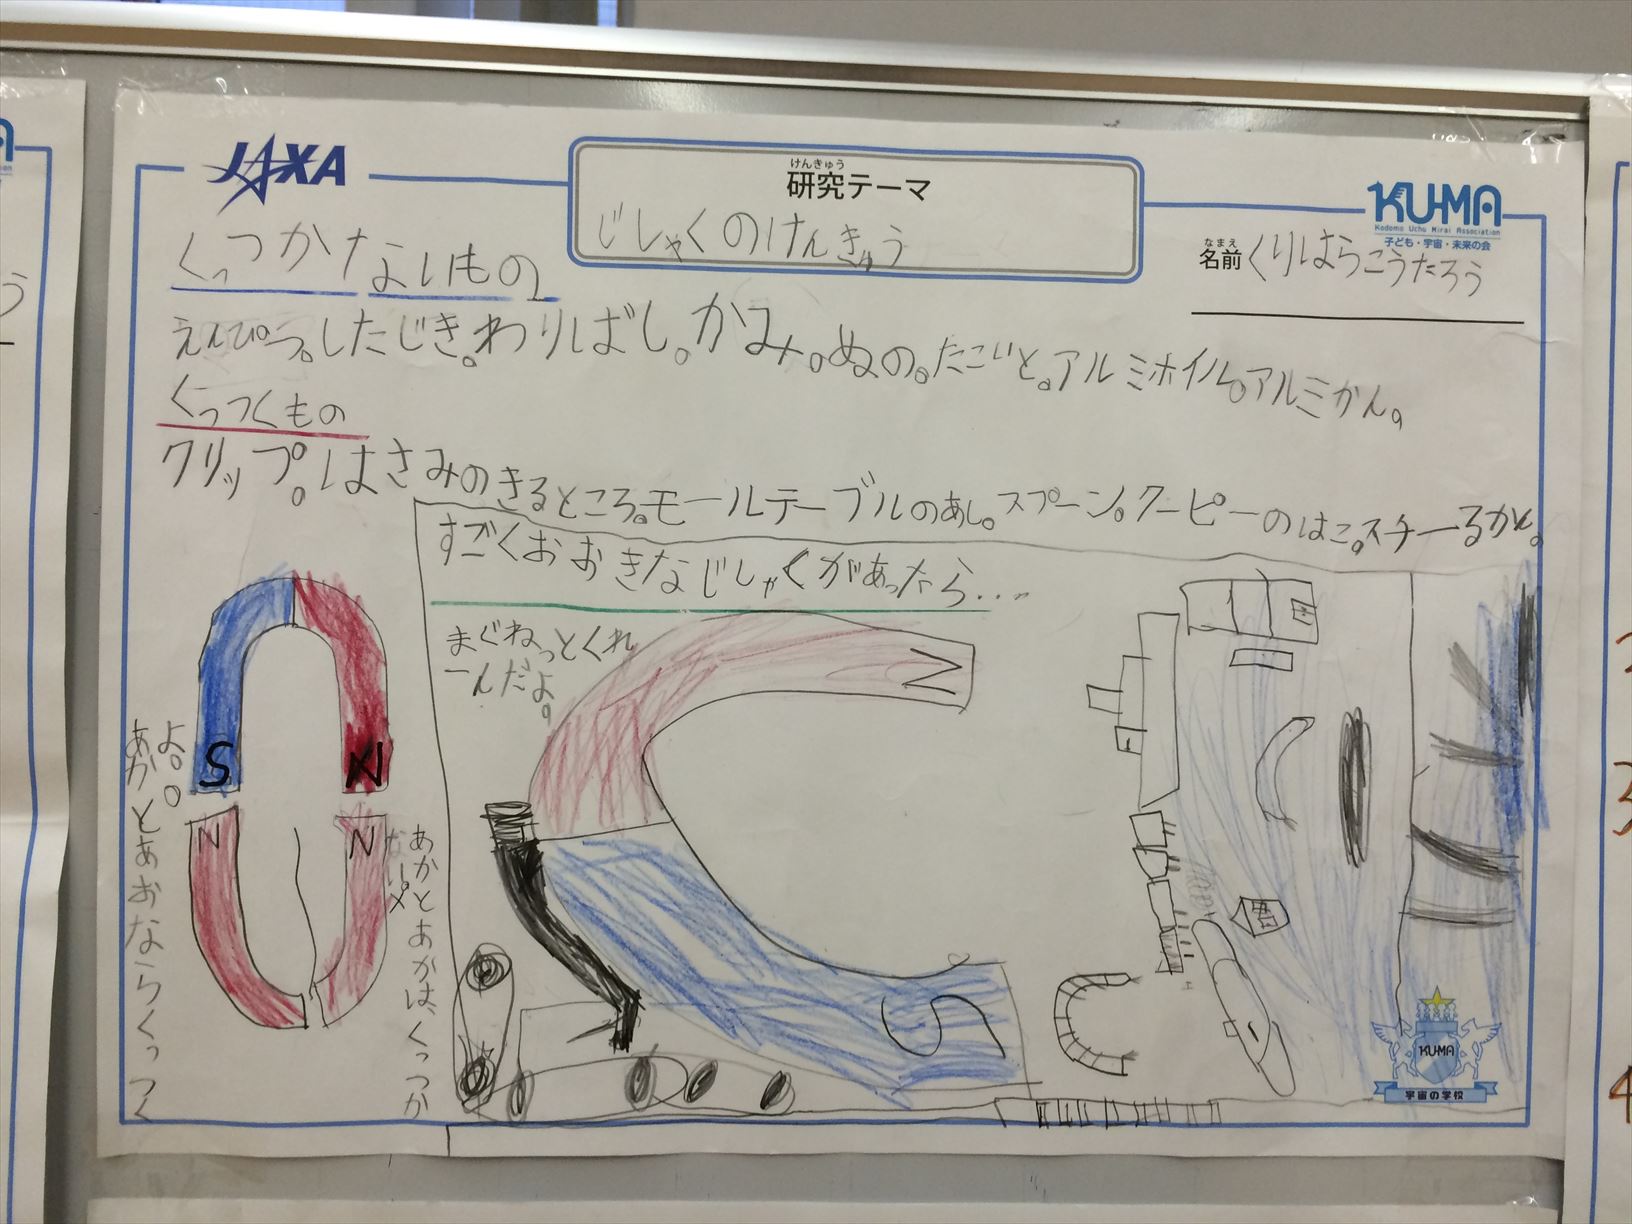 JAXA
けんきゅう
研究テーマ
じしゃくのけんきゅう
KU-MA
Kodomo Uchu Mirai Association
子ども・宇宙・未来の会
なまえ
名前 くりはらこうたろう
くっつかないもの
えんぴつ。したじき。わりばし。かみ。ぬの。たこいと。アルミホイル。アルミかん。
くっつくもの
クリップ。はさみのきるところ。モールテーブルのあし。スプーン。クーピーのはこ。スチーるかん。
すごくおおきなじしゃくがあったら…
まぐねっとくれ
ーんだよ。
N
S
S
N
N
N
あかとあおならくっつく
よ。
あかとあかは、くっつか
ない
KU-MA
宇宙の学校